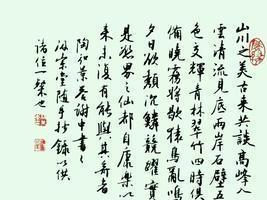 山川之美古来共談高峰入
雲清流見底兩岸石壁五
色交輝青林翠竹四時俱
備曉霧將歇猿鳥亂鳴
夕日欲頹沉鱗競躍實
是欲界之仙都自康樂以
来未復有能與其奇者
陶弘景答謝中書書
堂隨手抄錄以供
諸位一粲也